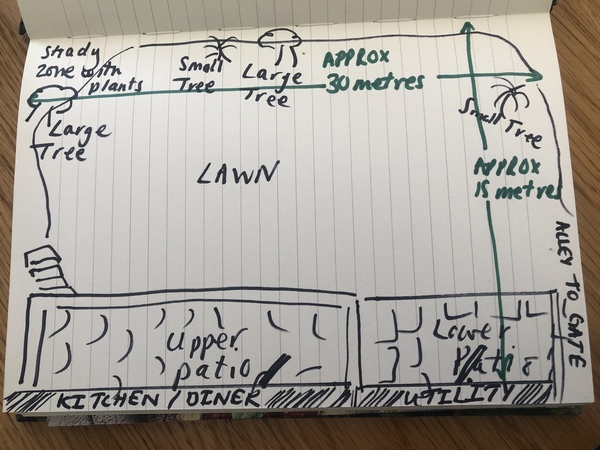 Shady
zone with
plants
Small
Tree
Large
Tree
APPROX
30 metres
Small Tree
Large
Tree
LAWN
APPROX
15 metres
ALLEY TO GATE
Upper
patio
Lower
Patio
KITCHEN / DINER
UTILITY